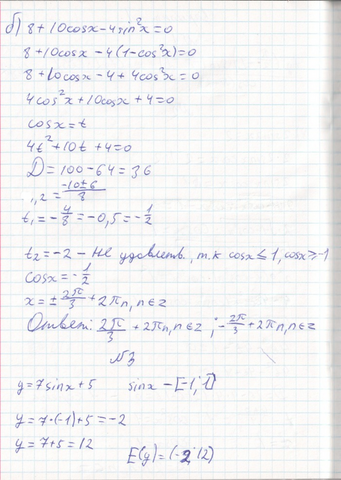 б) 8+10cosx-4sin²x=0
8+10cosx-4(1-cos²x)=0
8+10cosx-4+4cos²x=0
4cos²x+10cosx+4=0
cosx=t
4t²+10t+4=0
D=100-64=36
₁,₂=(-10±6)/8
t₁=-4/8=-0,5=-1/2
t₂=-2-не удовлетв., т.к cosx≤1, cosx≥-1
cosx=-1/2
x=±2π/3+2πn,n∈z
Ответ: 2π/3+2πn,n∈z; -2π/3+2πn,n∈z
N3
y=7sinx+5 sinx-[-1;1]
y=7·(-1)+5=-2
y=7+5=12
E(y)=(-2;12)